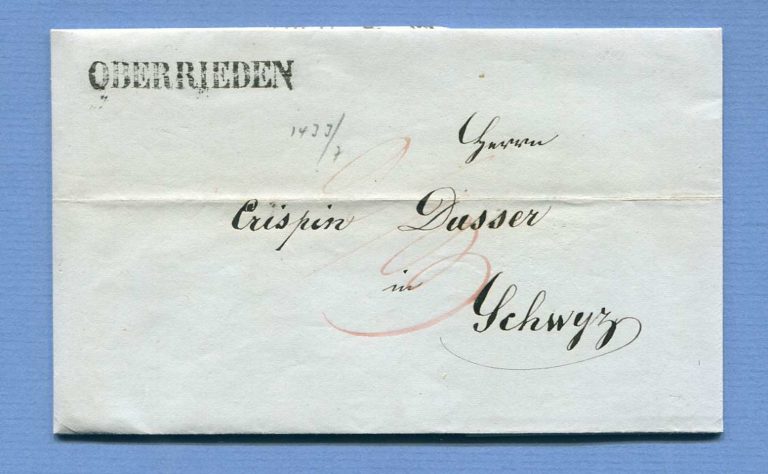 OBERRIEDEN
1433/7
Herrn
Crispin Dusser
in
Schwyz